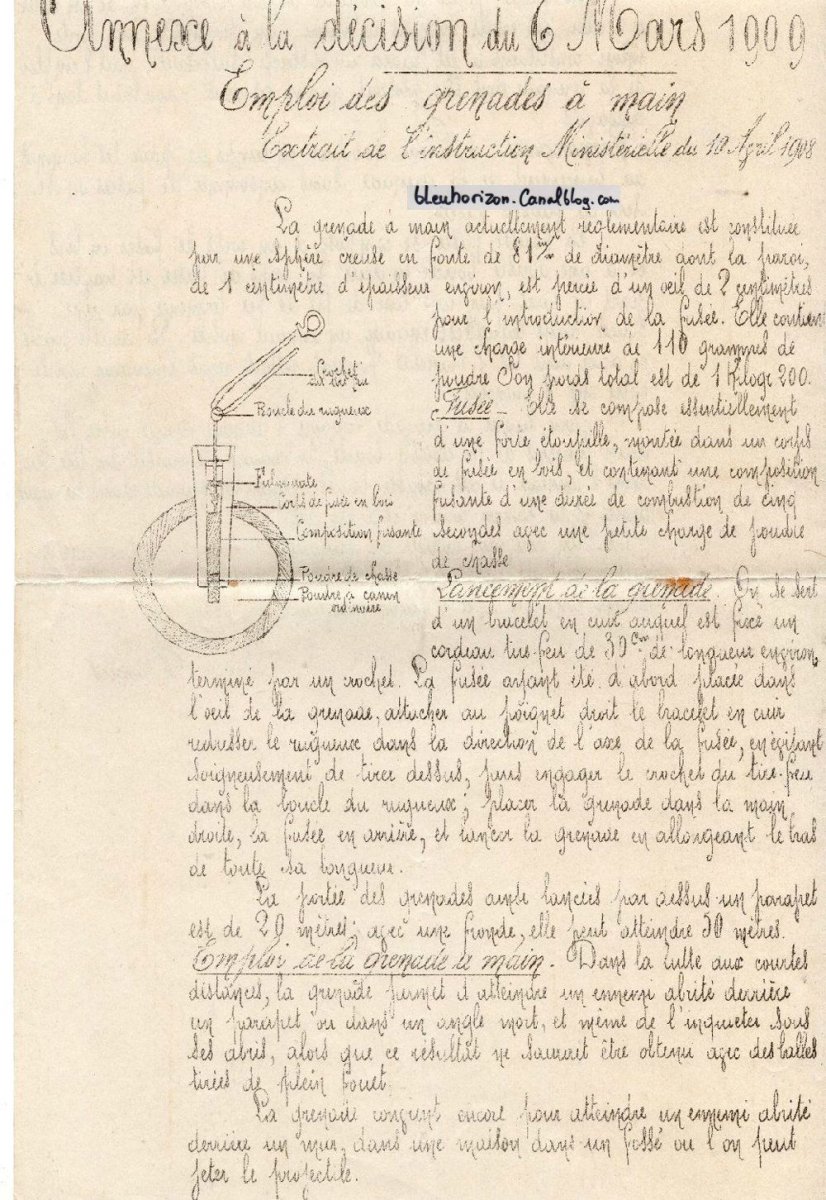 Annexe à la décision du 6 Mars 1909
Emploi des grenades à main
Extrait de l'instruction Ministérielle du 10 April 1908
bleuhorizon.Canalblog.com
La grenade à main actuellement réglementaire est constituée
par une sphère creuse en fonte de 81 mm de diamètre dont la paroi,
de 1 centimètre d'épaisseur environ, est percée d'un oeil de 2 centimètres
pour l'introduction de la fusée. Elle contient
une charge intérieure de 110 grammes de
poudre Son poids total est de 1 Kilogr 200.
Fusée _ Elle se compose essentiellement
d'une forte étoupille, montée dans un corps
de fusée en bois, et contenant une composition
fusante d'une durée de combustion de cinq
secondes avec une petite charge de poudre
de chasse
Crochet
Boucle du rugueux
Fulminate
Corps de fusée en bois
Composition fusante
Poudre de chasse
Poudre à canon
ordinaire
Lancement de la grenade. On se sert
d'un bracelet en cuir auquel est fixé un
cordeau tire-feu de 30 cm de longueur environ,
terminé par un crochet. La fusée ayant été d'abord placée dans
l'oeil de la grenade, attacher au poignet droit le bracelet en cuir
redresser le rugueux dans la direction de l'axe de la fusée, en évitant
soigneusement de tirer dessus, puis engager le crochet du tire-feu
dans la boucle du rugueux; placer la grenade dans la main
droite, la fusée en arrière, et lancer la grenade en allongeant le bras
de toute sa longueur.
La portée des grenades ainsi lancées par dessus un parapet
est de 20 mètres; avec une fronde, elle peut atteindre 50 mètres.
Emploi de la grenade à main - Dans la lutte aux courtes
distances, la grenade permet d'atteindre un ennemi abrité derrière
un parapet, ou dans un angle mort, et même de l'inquiéter sous
ses abris, alors que ce résultat ne saurait être obtenu avec des balles
tirées de plein fouet
La grenade convient encore pour atteindre un ennemi abrité
derrière un mur, dans une maison dans un fossé où l'on peut
jeter le projectile.